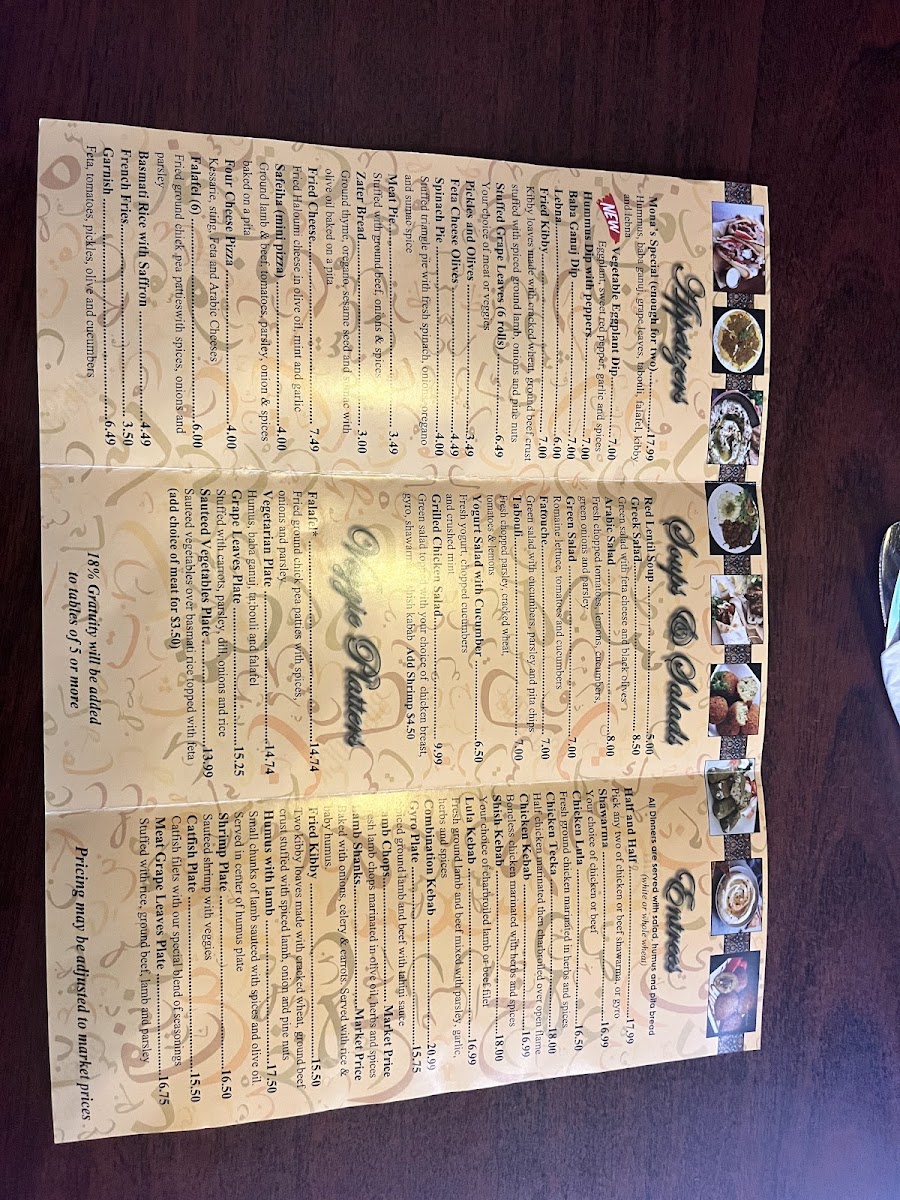 Appetizers
Mona's Special (enough for two) ............17.99
Hummus, baba ganuj, grape leaves, tabouli, falafel, kibby
and lebna
NEW Vegetable Eggplant Dip............7.00
Eggplant, sweet red pepper, garlic and spices
Hummus Dip with peppers............7.00
Baba Ganuj Dip............7.00
Lebna............6.00
Fried Kibby............7.00
Kibby loaves made with cracked wheat, ground beef crust
stuffed with spiced ground lamb, onions and pine nuts
Stuffed Grape Leaves (6 rolls)............6.49
Your choice of meat or veggies
Pickles and Olives............3.49
Feta Cheese Olives............4.49
Spinach Pie............4.00
Stuffed triangle pie with fresh spinach, onion, oregano
and sumac spice
Meat Pie............3.49
Stuffed with ground beef, onions & spices
Zater Bread............3.00
Ground thyme, oregano, sesame seed and with
olive oil baked on a pita
Fried Cheese............7.49
Fried Haloumi cheese in olive oil, mint and garlic
Safeiha (mini pizza)............4.00
Ground lamb & beef, tomatoes, parsley, onion & spices
baked on a pita
Four Cheese Pizza............4.00
Kessarie, string, Feta and Arabic Cheeses
Falafel (6)............6.00
Fried ground chick pea pattieswith spices, onions and
parsley
Basmati Rice with Saffron............4.49
French Fries............3.50
Garnish............6.49
Feta, tomatoes, pickles, olive and cucumbers
Soups & Salads
Red Lentil Soup............5.00
Greek Salad............8.50
Green salad with feta cheese and black olives
Arabic Salad............8.00
Fresh chopped tomatoes, lemons, cucumbers,
green onions and parsley
Green Salad............7.00
Romaine lettuce, tomatoes and cucumbers
Fatouche............7.00
Green salad with cucumbers, parsley and pita chips
Tabouli............7.00
Fresh chopped parsley, cracked wheat,
tomatoes & lemons
Yogurt Salad with Cucumber............6.50
Fresh yogurt, chopped cucumbers
and crushed mint
Grilled Chicken Salad............9.99
Green salad with your choice of chicken breast,
gyro, shawarma kabab Add Shrimp $4.50
Veggie Platters
Falafel*............14.74
Fried ground chick pea patties with spices,
onions and parsley
Vegetarian Plate............14.74
Humus, baba ganuj, tabouli and falafel
Grape Leaves Plate............15.25
Stuffed with carrots, parsley, dill, onions and rice
Sauteed Vegetables Plate............13.99
Sauteed vegetables over basmati rice topped with feta
(add choice of meat for $3.50)
18% Gratuity will be added
to tables of 5 or more
Entrees
All Dinners are served with salad, humus and pita bread
(white or whole wheat)
Half and Half............17.99
Pick any two of chicken or beef shawarma, or gyro
Shawarma............16.99
Your choice of chicken or beef
Chicken Lula............16.50
Fresh ground chicken marinated in herbs and spices
Chicken Tecka............18.00
Half chicken marinated then charbroiled over open flame
Chicken Kebab............16.99
Boneless chicken marinated with herbs and spices
Shish Kebab............18.00
Your choice of charbroiled lamb or beef filet
Lula Kebab............16.99
Fresh ground lamb and beef mixed with parsley, garlic,
herbs and spices
Combination Kebab............20.99
Gyro Plate............15.75
Spiced ground lamb and beef with tahini sauce
Lamb Chops............Market Price
Fresh lamb chops marinated in olive oil, herbs and spices
Lamb Shanks............Market Price
Baked with onions, celery & carrots. Served with rice &
baby humus.
Fried Kibby............15.50
Two kibby looves made with cracked wheat, ground beef
crust stuffed with spiced lamb, onion and pine nuts
Humus with lamb............17.50
Small chunks of lamb sauteed with spices and olive oil.
Served in center of humus plate
Shrimp Plate............16.50
Sauteed shrimp with veggies
Catfish Plate............15.50
Catfish filets with our special blend of seasonings
Meat Grape Leaves Plate............16.75
Stuffed with rice, ground beef, lamb and parsley
Pricing may be adjusted to market prices.